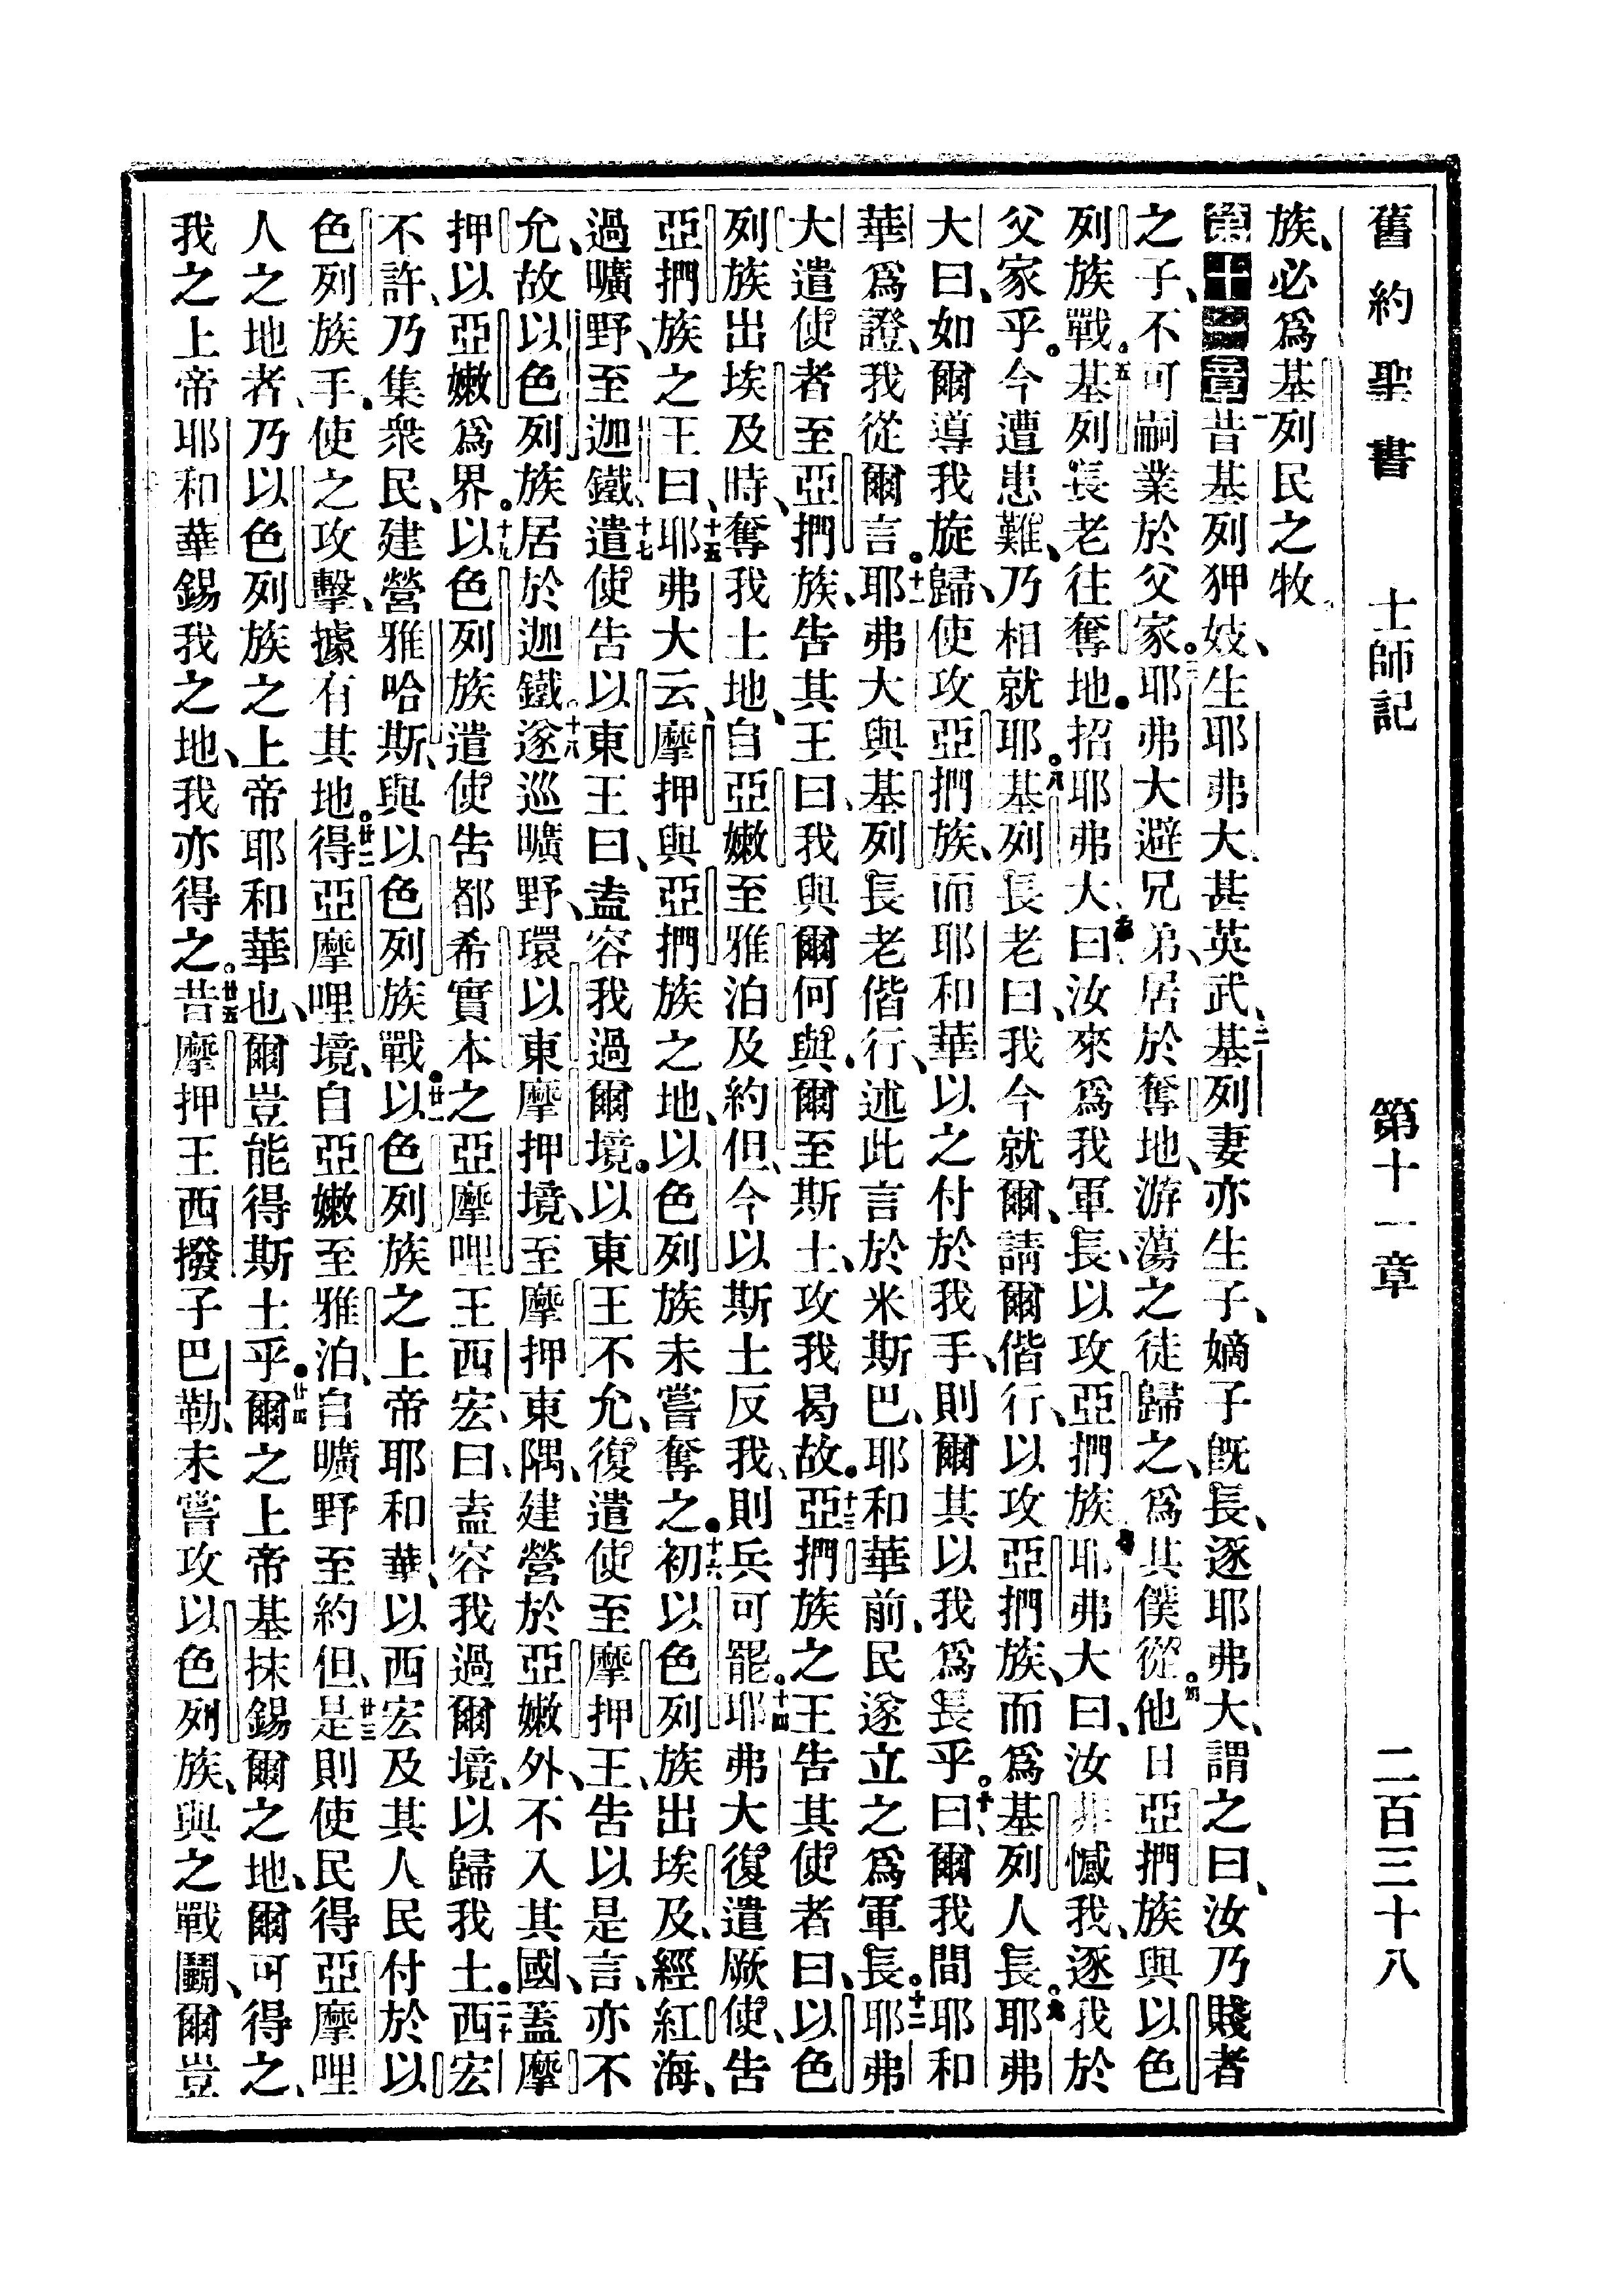 舊約聖書 士師記 第十一章 二百三十八
族、必爲基列民之牧。
第十一章一昔基列狎妓、生耶弗大、甚英武、二基列妻亦生子、嫡子旣長、逐耶弗大、謂之曰、汝乃賤者
之子、不可嗣業於父家。三耶弗大避兄弟、居於奪地、游蕩之徒歸之、爲其僕從。四他日亞捫族與以色
列族戰。五基列長老往奪地。招耶弗大六曰、汝來爲我軍長、以攻亞捫族。七耶弗大曰、汝非憾我、逐我於
父家乎。今遭患難、乃相就耶。八基列長老曰、我今就爾、請爾偕行、以攻亞捫族、而爲基列人長。九耶弗
大曰、如爾導我旋歸、使攻亞捫族、而耶和華以之付於我手、則爾其以我爲長乎。十曰、爾我間耶和
華爲證、我從爾言。十一耶弗大與基列長老偕行、述此言於米斯巴、耶和華前、民遂立之爲軍長。十二耶弗
大遣使者至亞捫族、告其王曰、我與爾何與、爾至斯土、攻我曷故。十三亞捫族之王告其使者曰、以色
列族出埃及時、奪我土地、自亞嫩至雅泊及約但、今以斯土反我、則兵可罷。十四耶弗大復遣厥使、告
亞捫族之王曰、十五耶弗大云、摩押與亞捫族之地、以色列族未嘗奪之。十六初以色列族出埃及、經紅海、
過曠野、至迦鐵、十七遣使告以東王曰、盍容我過爾境。以東王不允、復遣使至摩押王、告以是言、亦不
允、故以色列族居於迦鐵。十八遂巡曠野、環以東摩押境、至摩押東隅、建營於亞嫩外、不入其國、蓋摩
押以亞嫩爲界。十九以色列族遣使告都希實本之亞摩哩王西宏、曰、盍容我過爾境、以歸我土。二十西宏
不許、乃集衆民、建營雅哈斯、與以色列族戰。廿一以色列族之上帝耶和華、以西宏及其人民付於以
色列族手、使之攻擊、據有其地。廿二得亞摩哩境、自亞嫩至雅泊、自曠野至約但、廿三是則使民得亞摩哩
人之地者、乃以色列族之上帝耶和華也、爾豈能得斯土乎。廿四爾之上帝基抹錫爾之地、爾可得之、
我之上帝耶和華錫我之地、我亦得之。廿五昔摩押王西撥子巴勒、未嘗攻以色列族、與之戰鬬、爾豈